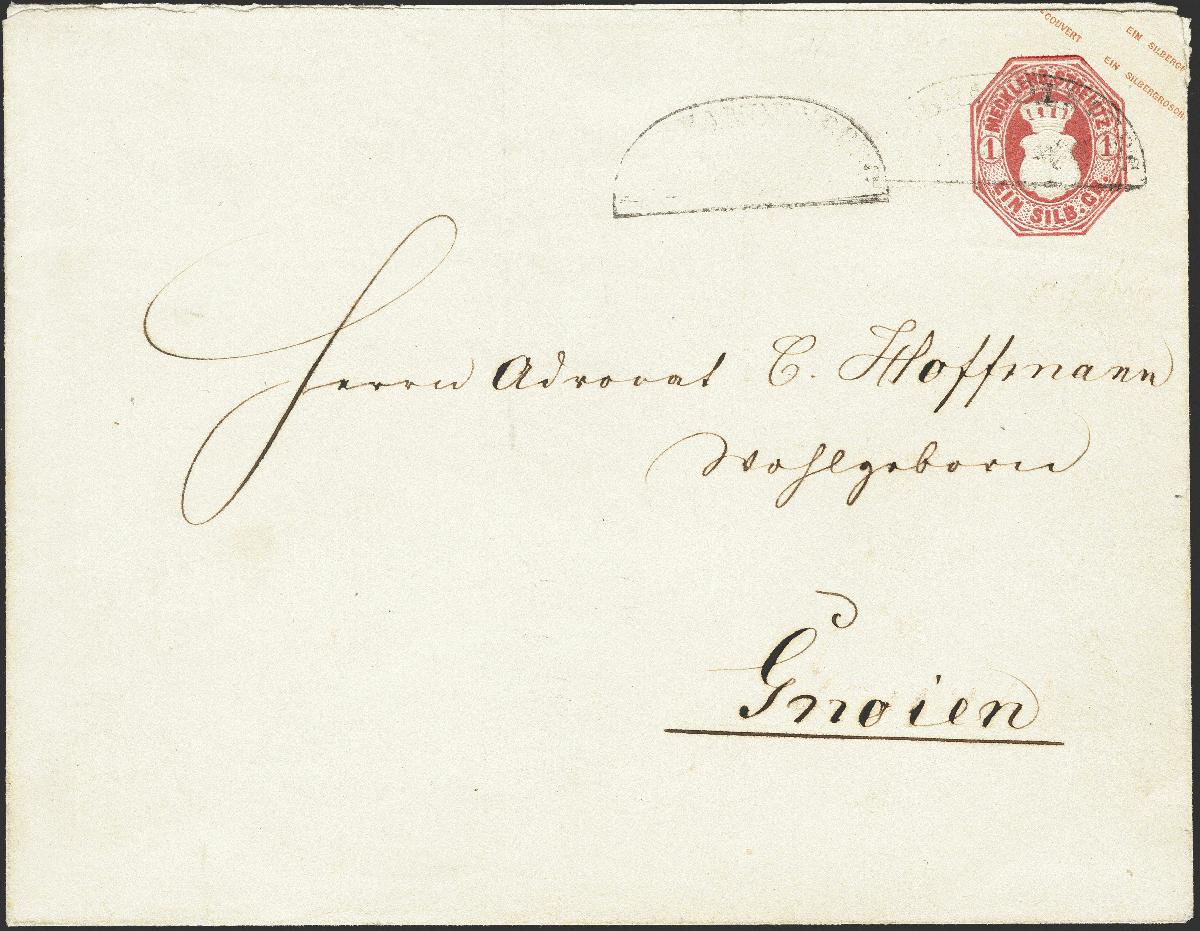 COUVERT
EIN SILBERG
EIN SILBERGROSCH
MECKLENB. STRELITZ
1 1
EIN SILB. GR.
Herrn Advocat C. Hoffmann
Wohlgeborn
Gnoien